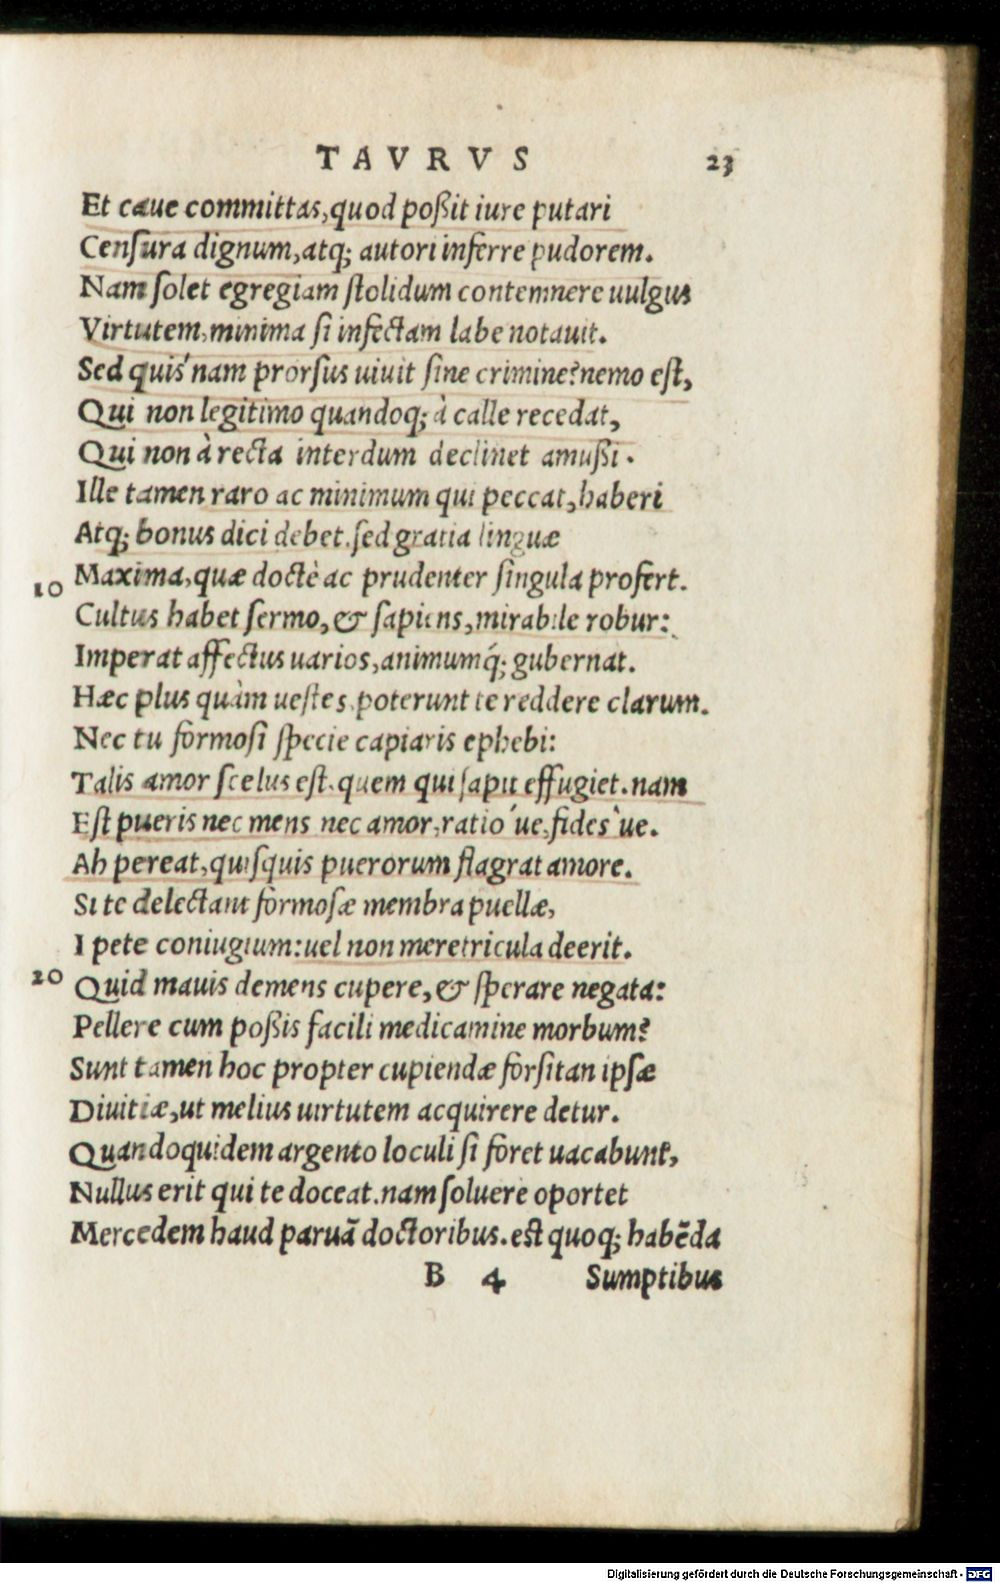 TAVRVS 23
Et caue committas, quod poßit iure putari
Censura dignum, atq; autori inferre pudorem.
Nam solet egregiam stolidum contemnere uulgus
Virtutem, minima si infectam labe notauit.
Sed quis'nam prorsus uiuit sine crimine? nemo est,
Qui non legitimo quandoq; à calle recedat,
Qui non à recta interdum declinet amußi.
Ille tamen raro ac minimum qui peccat, haberi
Atq; bonus dici debet. sed gratia linguæ
10 Maxima, quæ doctè ac prudenter singula profert.
Cultus habet sermo, & sapiens, mirabile robur:
Imperat affectus uarios, animumq́; gubernat.
Hæc plus quàm uestes poterunt te reddere clarum.
Nec tu formosi specie capiaris ephebi:
Talis amor scelus est, quem qui sapit effugiet. nam
Est pueris nec mens nec amor, ratio ́ue, fides ̀ue.
Ah pereat, quisquis puerorum flagrat amore.
Si te delectant formosæ membra puellæ,
I pete coniugium: uel non meretricula deerit.
20 Quid mauis demens cupere, & sperare negata:
Pellere cum poßis facili medicamine morbum?
Sunt tamen hoc propter cupiendæ forsitan ipsæ
Diuitiæ, ut melius uirtutem acquirere detur.
Quandoquidem argento loculi si foret uacabunt,
Nullus erit qui te doceat. nam soluere oportet
Mercedem haud paruā doctoribus. est quoq; habēda
B 4 Sumptibus
Digitalisierung gefördert durch die Deutsche Forschungsgemeinschaft - DFG